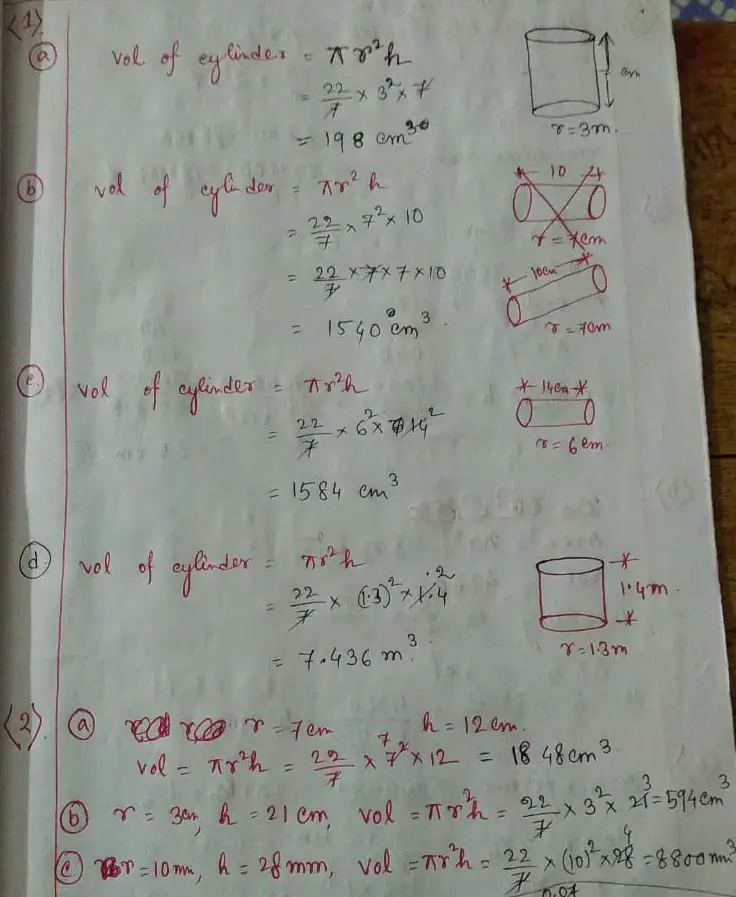 <1>.
(a) vol of cylinder = πr²h
= 22/7 × 3² × 7
= 198 cm³
cm
r = 3m.
(b) vol of cylinder = πr²h
= 22/7 × 7² × 10
= 22/7 × 7 × 7 × 10
= 1540 cm³.
10
r = 7cm
10cm
r = 7cm
(c) vol of cylinder = πr²h
= 22/7 × 6² × 14 2
= 1584 cm³
14cm
r = 6cm.
(d) vol of cylinder = πr²h
= 22/7 × (1.3)² × 1.4 .2
= 7.436 m³.
1.4m.
r = 1.3m
<2>. (a) r = 7cm h = 12cm.
vol = πr²h = 22/7 × 7² 7 × 12 = 1848cm³.
(b) r = 3cm, h = 21cm, vol = πr²h = 22/7 × 3² × 21 3 = 594cm³
(c) r = 10mm, h = 28mm, vol = πr²h = 22/7 × (10)² × 28 4 = 8800mm³
0.07